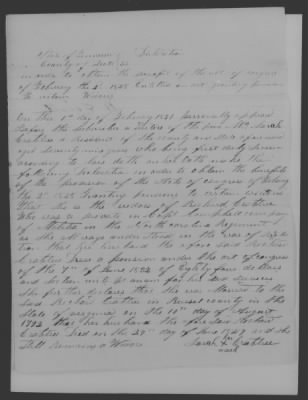 State of Tennessee } Declaration
County of Scott } ss
in order to obtain the benefit of the act of congress
of February the 2d 1848 Entitled an act granting pensions
to certain Widows
On this 1st day of February 1848 personally appeared
before the subscriber a Justice of the peace Mrs Sarah
Crabtree a resident of the county and State aforesaid
and Seventy nine years who being first duly Sworn
according to law doth on her oath make the
following declaration in order to obtain the benefits
of the provision of the Act of congress of February
the 2d 1848 Granting pensions to certain widows
that she is the widow of Richard Crabtree
who was a private in Capt Campbell company
of Militia in the North carolina Regiment
as she allways understood in the war of Revolu
tion that her husband the afore said Richard
Crabtree Drew a pension under the act of congress
of the 7th of June 1832 of Eighty five dollars
and Sixteen cents pr annum for his Services
She further declares that she was Married to the
Said Richard Crabtree in Russell county in the
State of virginia on the 10th day of August
1792 that her husband the afore Said Richard
Crabtree Died on the 29th day of June 1847 and she
Still remains a Widow
Sarah Crabtree
mark